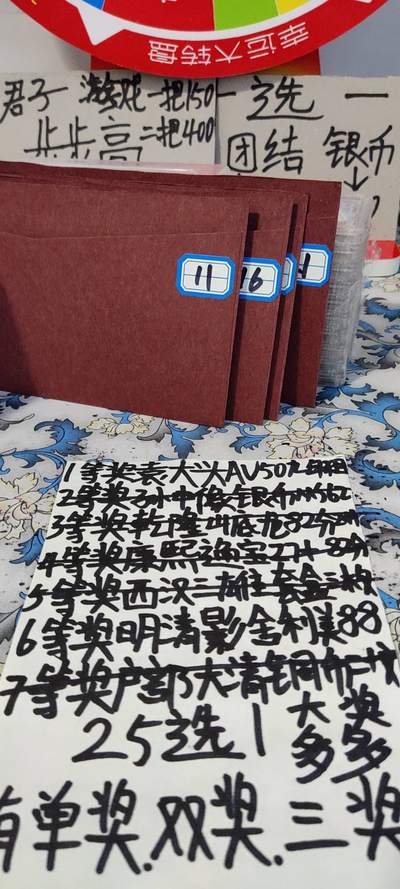 幸运大转盘
君子 游戏一把150
步步高二把400
一选一
团结 银币
11
16
1等奖袁大头AU50
2等奖孙中像银币MS62
3等奖乾隆山底龙82分
4等奖康熙进宝
5等奖西汉三雄
6等奖明清影金利美88
7等奖户部大清铜币
25选1 大奖多多
有单奖.双奖.三奖